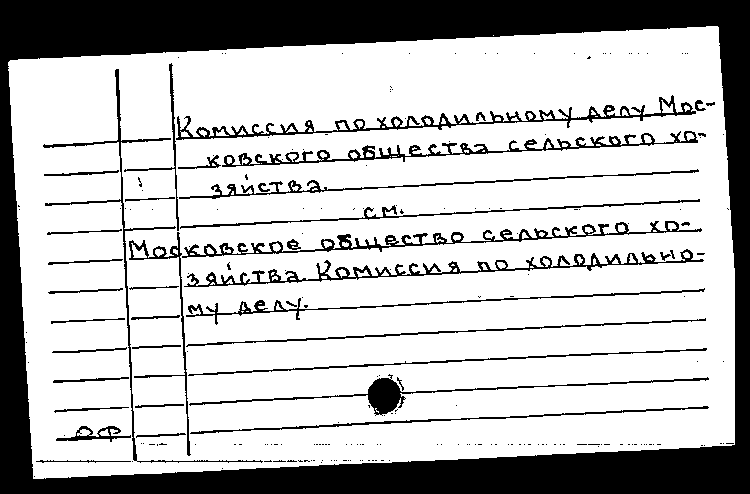 Комиссия по холодильному делу Мос-
ковского общества сельского хо-
зяйства.
см.
Московское общество сельского хо-
зяйства. Комиссия по холодильно-
му делу.
ОФ